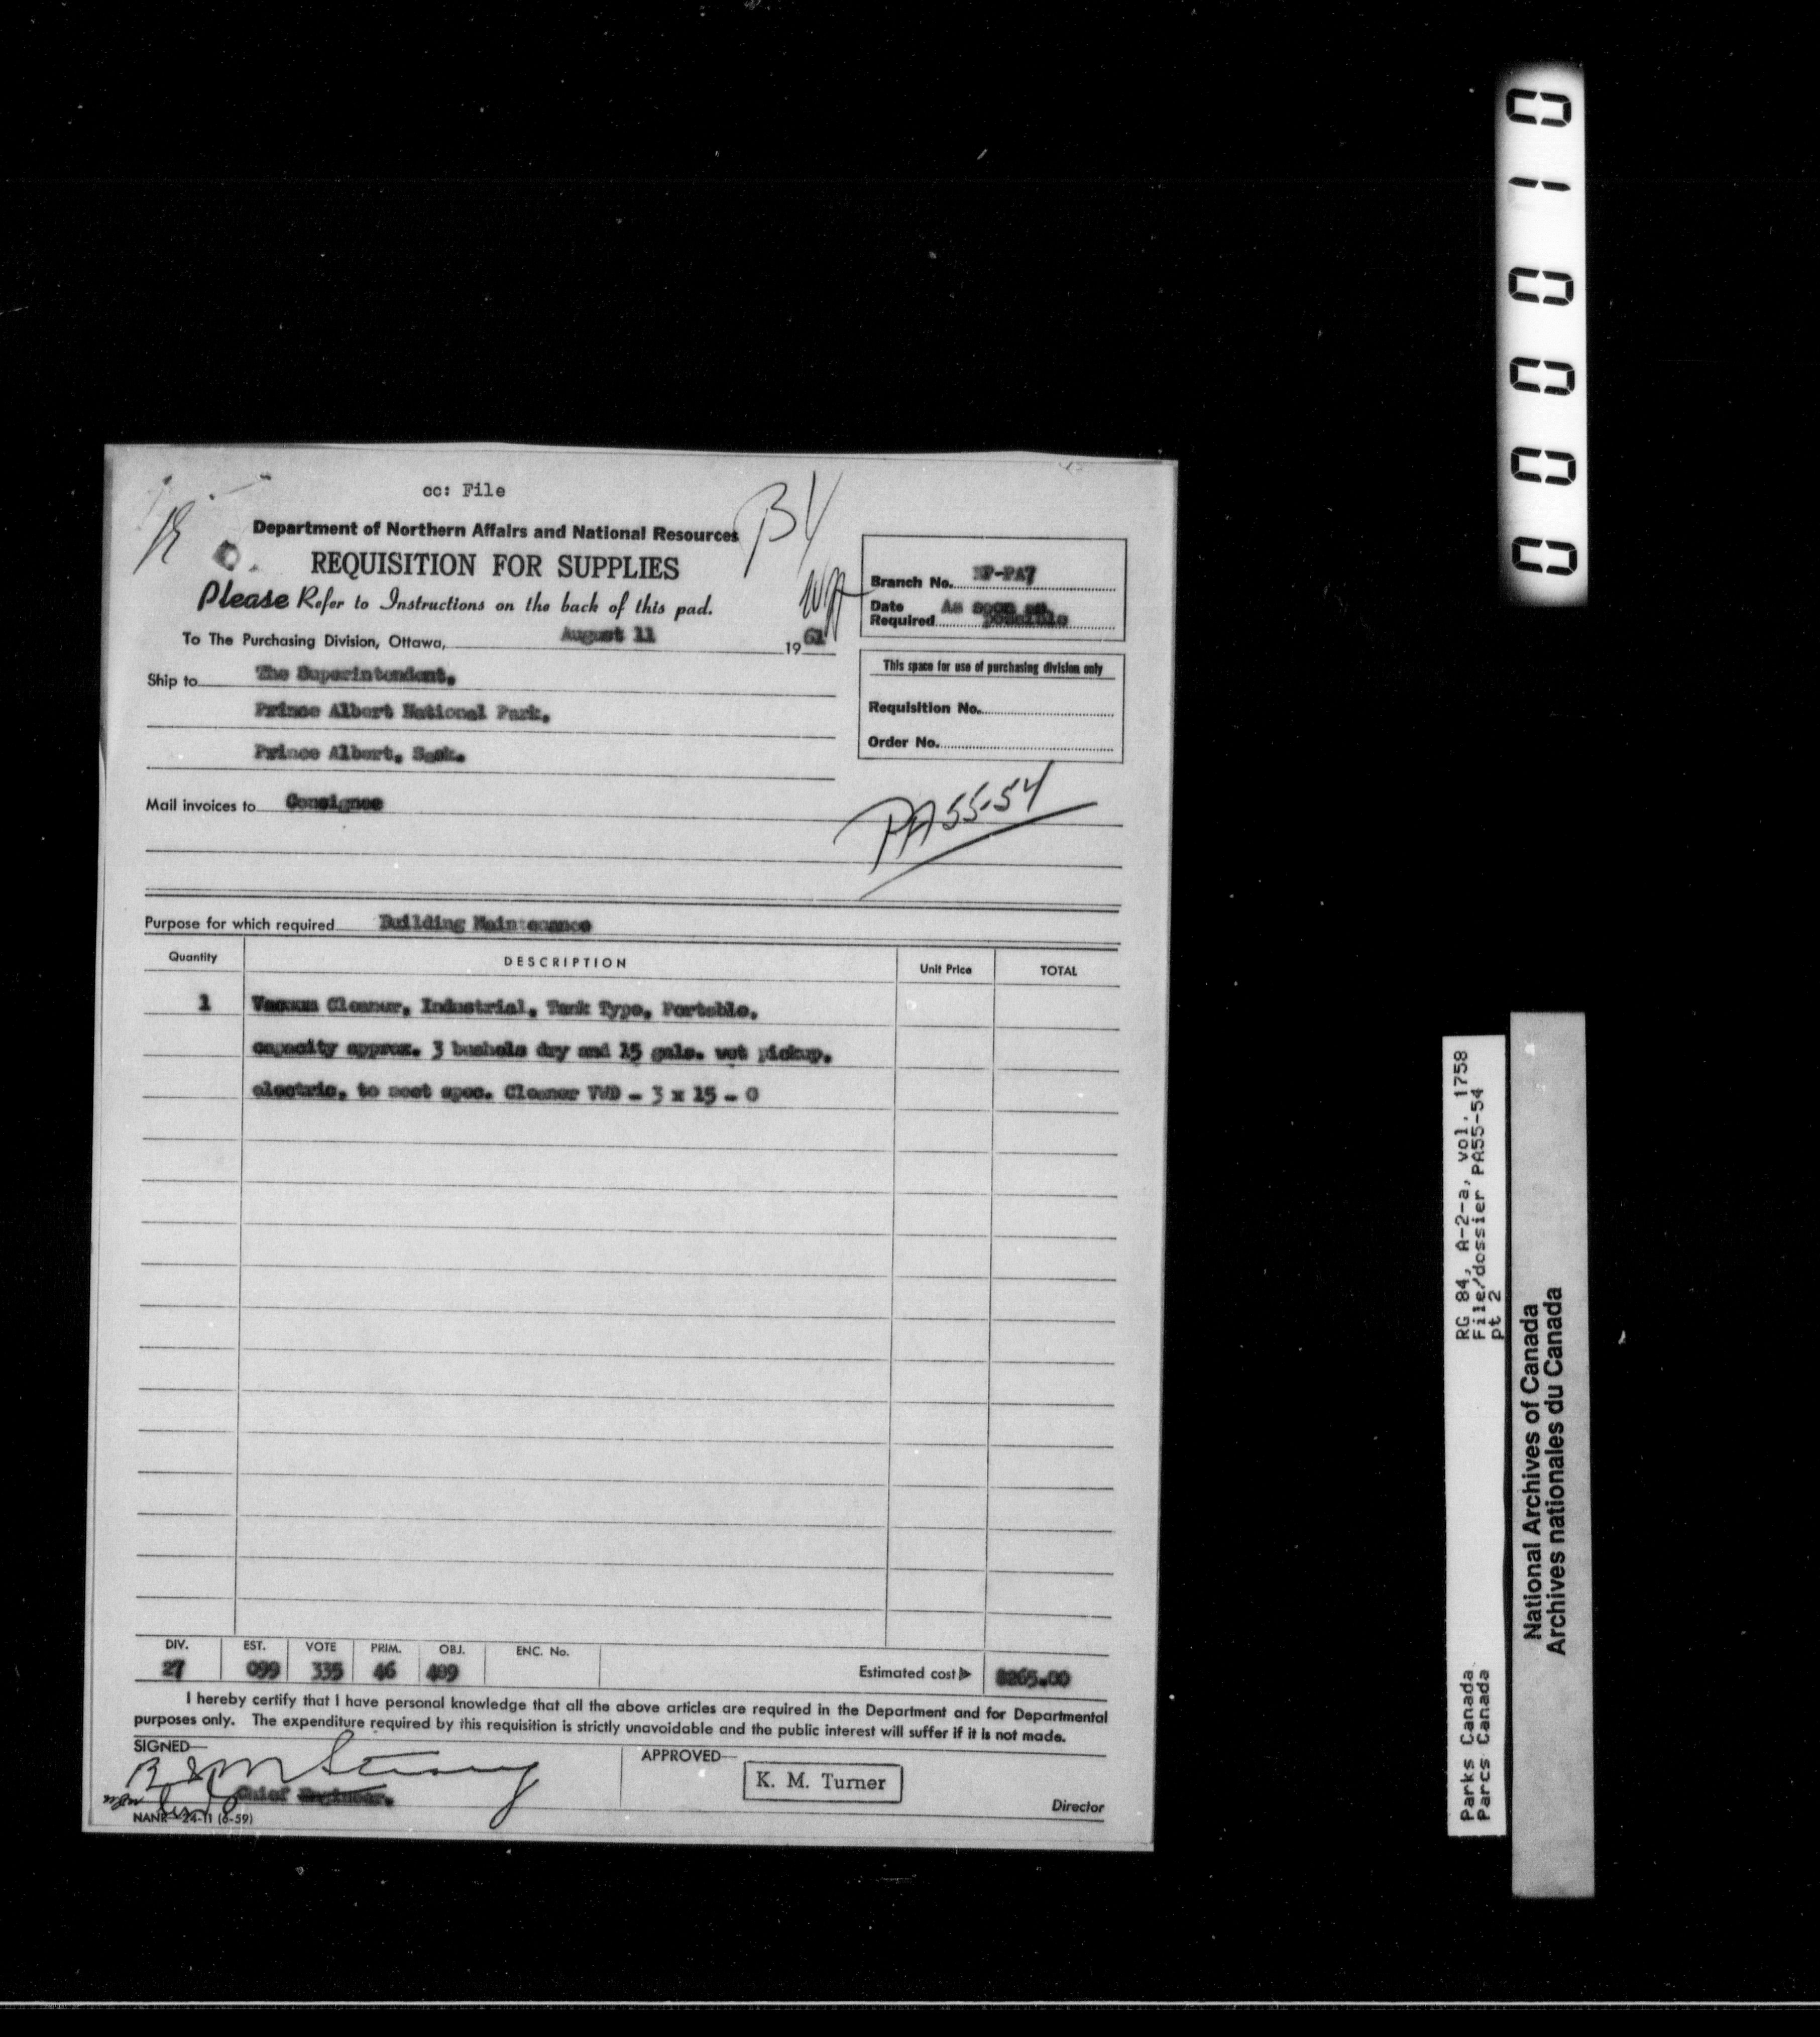 cc: File
B4
Department of Northern Affairs and National Resources
REQUISITION FOR SUPPLIES
Please Refer to Instructions on the back of this pad.
Branch No. NP-PA7
Date Required As soon as possible
To The Purchasing Division, Ottawa, August 11 1961
This space for use of purchasing division only
Requisition No.
Order No.
Ship to The Superintendent,
Prince Albert National Park,
Prince Albert, Sask.
Mail invoices to Consignee
PA 55-54
Purpose for which required Building Maintenance
Quantity DESCRIPTION Unit Price TOTAL
1 Vacuum Cleaner, Industrial, Tank Type, Portable,
capacity approx. 3 bushels dry and 15 gals. wet pickup,
electric, to meet spec. Cleaner VWD - 3 x 15 - 0
DIV. EST. VOTE PRIM. OBJ. ENC. No.
27 099 335 46 409 Estimated cost $265.00
I hereby certify that I have personal knowledge that all the above articles are required in the Department and for Departmental
purposes only. The expenditure required by this requisition is strictly unavoidable and the public interest will suffer if it is not made.
SIGNED—
APPROVED—
K. M. Turner
Chief Engineer.
Director
NANR—24-11 (6-59)
000010
RG 84, A-2-a, vol. 1758
File/dossier PA55-54
pt 2
Parks Canada
Parcs Canada
National Archives of Canada
Archives nationales du Canada